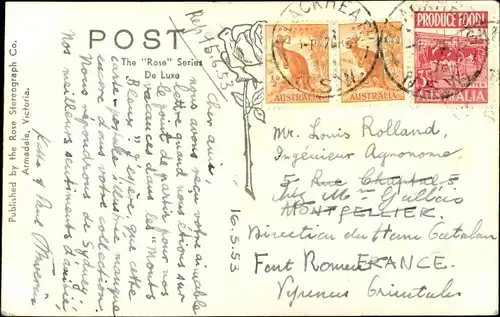 POST
The "Rose" Series
De Luxe
Published by the Rose Stereograph Co.
Armadale, Victoria.
Rep 15.6.53
16.3.53
Cher ami,
nous avons reçu votre aimable
lettre quand nous étions sur
le point de partir pour nos
vacances dans les "Monts
Bleus". J'espère que cette
carte-postale illustrée manque
encore dans votre collection.
Nous repondrons de Sydney.
Nos meilleurs sentiments d'amitié,
BLACKHEATH
N.S.W.
AUSTRALIA
AUSTRALIA
PRODUCE FOOD!
AUSTRALIA
Mr. Louis Rolland,
Ingénieur Agronome.
5 Rue Chaptal
chez Mme Gallois
MONTPELLIER.
Direction du Home Catalan
Font Romeu FRANCE.
Pyrenées Orientales